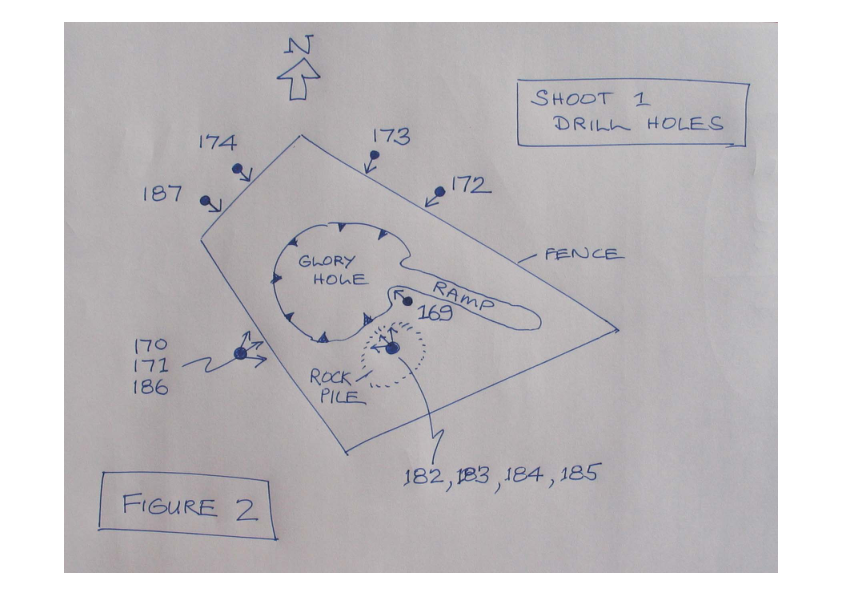 N
SHOOT 1
DRILL HOLES
174
173
187
172
FENCE
GLORY
HOLE
RAMP
169
170
171
186
ROCK
PILE
182, 183, 184, 185
FIGURE 2